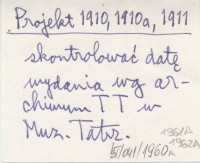 Projekt 1910, 1910a, 1911
skontrolować datę
wydania wg ar-
chiwum TT w
Muz. Tatrz.
1961A
1962A